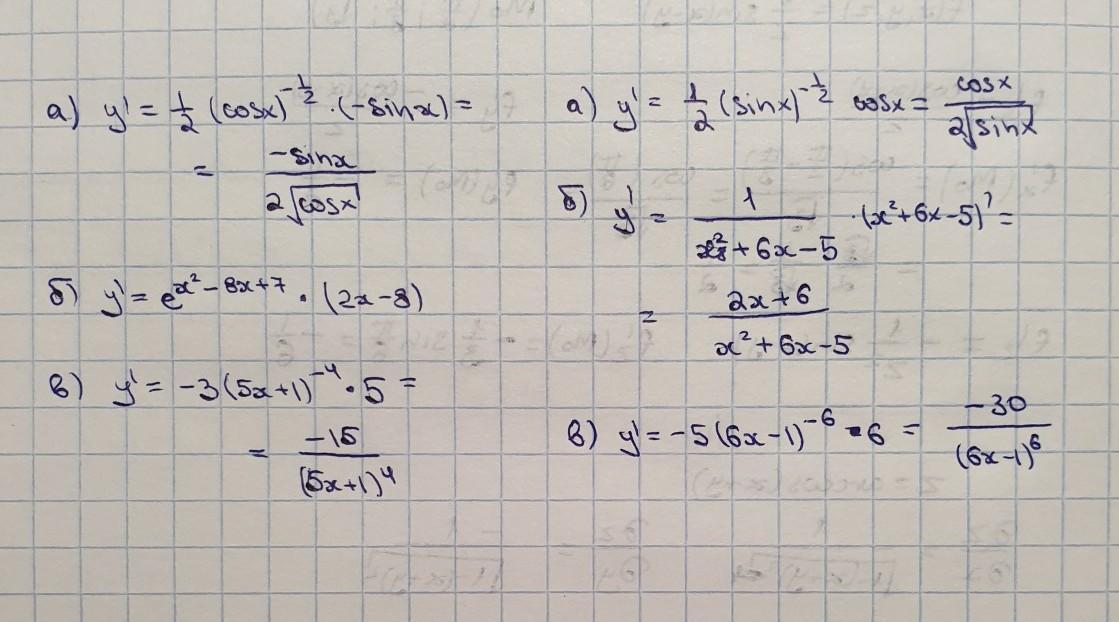 а) y' = 1/2 (cosx)^(-1/2) · (-sinx) =
= -sinx / 2√cosx
б) y' = e^(x²-8x+7) · (2x-8)
в) y' = -3(5x+1)^(-4) · 5 =
= -15 / (5x+1)^4
а) y' = 1/2 (sinx)^(-1/2) cosx = cosx / 2√sinx
б) y' = 1 / x²+6x-5 · (x²+6x-5)' =
= 2x+6 / x²+6x-5
в) y' = -5(6x-1)^(-6) · 6 = -30 / (6x-1)^6